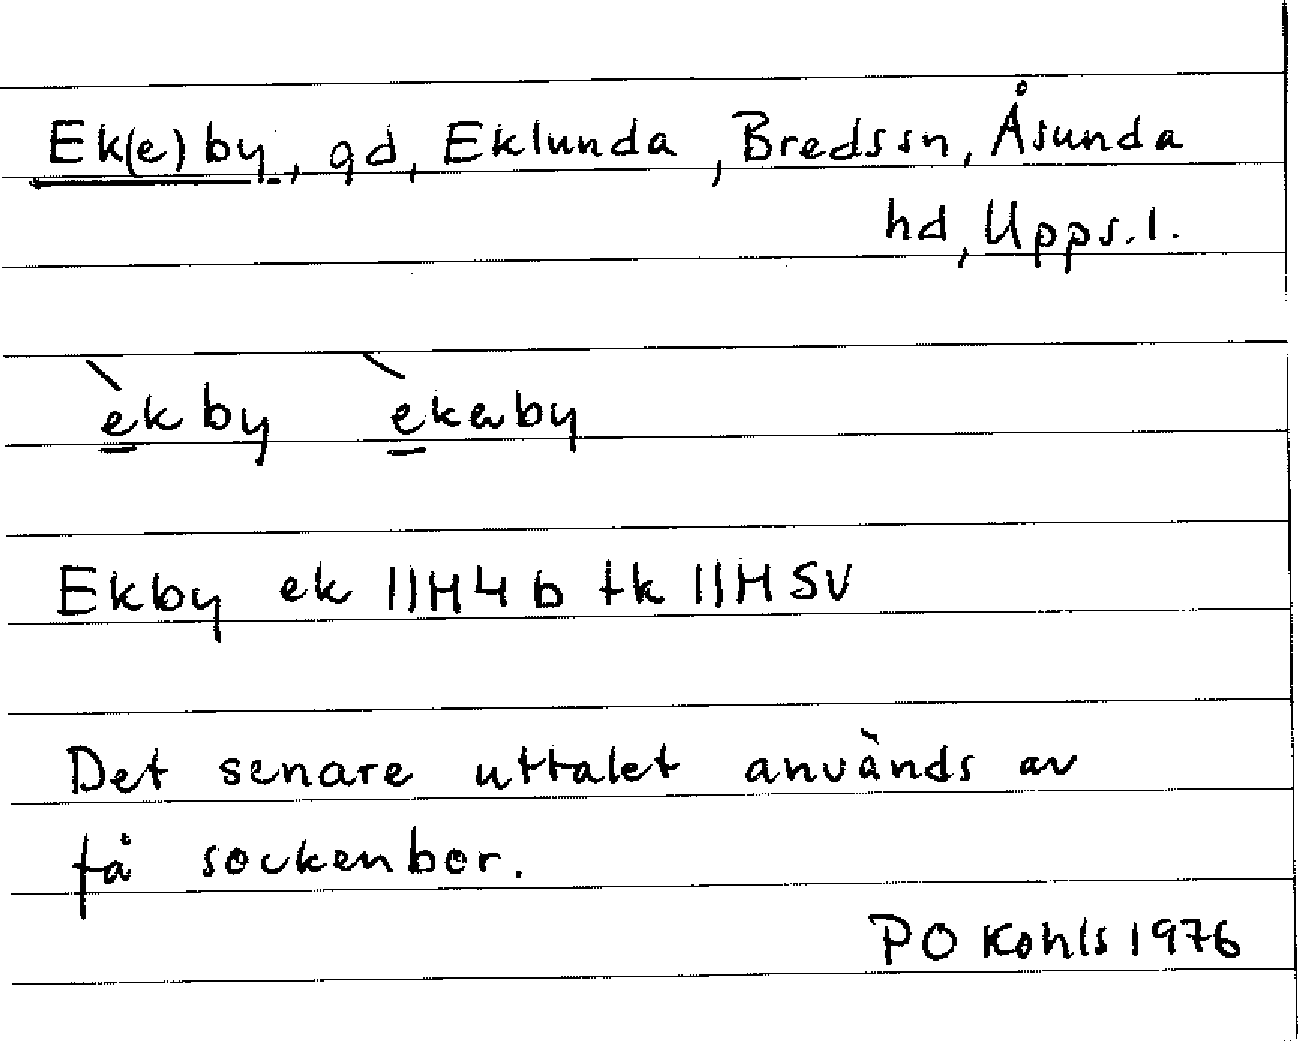 Ek(e)by, gd, Eklunda, Bredssn, Åsunda
hd, Upps. l.
ekby ekaby
Ekby ek 11H4b tk 11HSV
Det senare uttalet används av
få sockenbor.
PO Kohls 1976